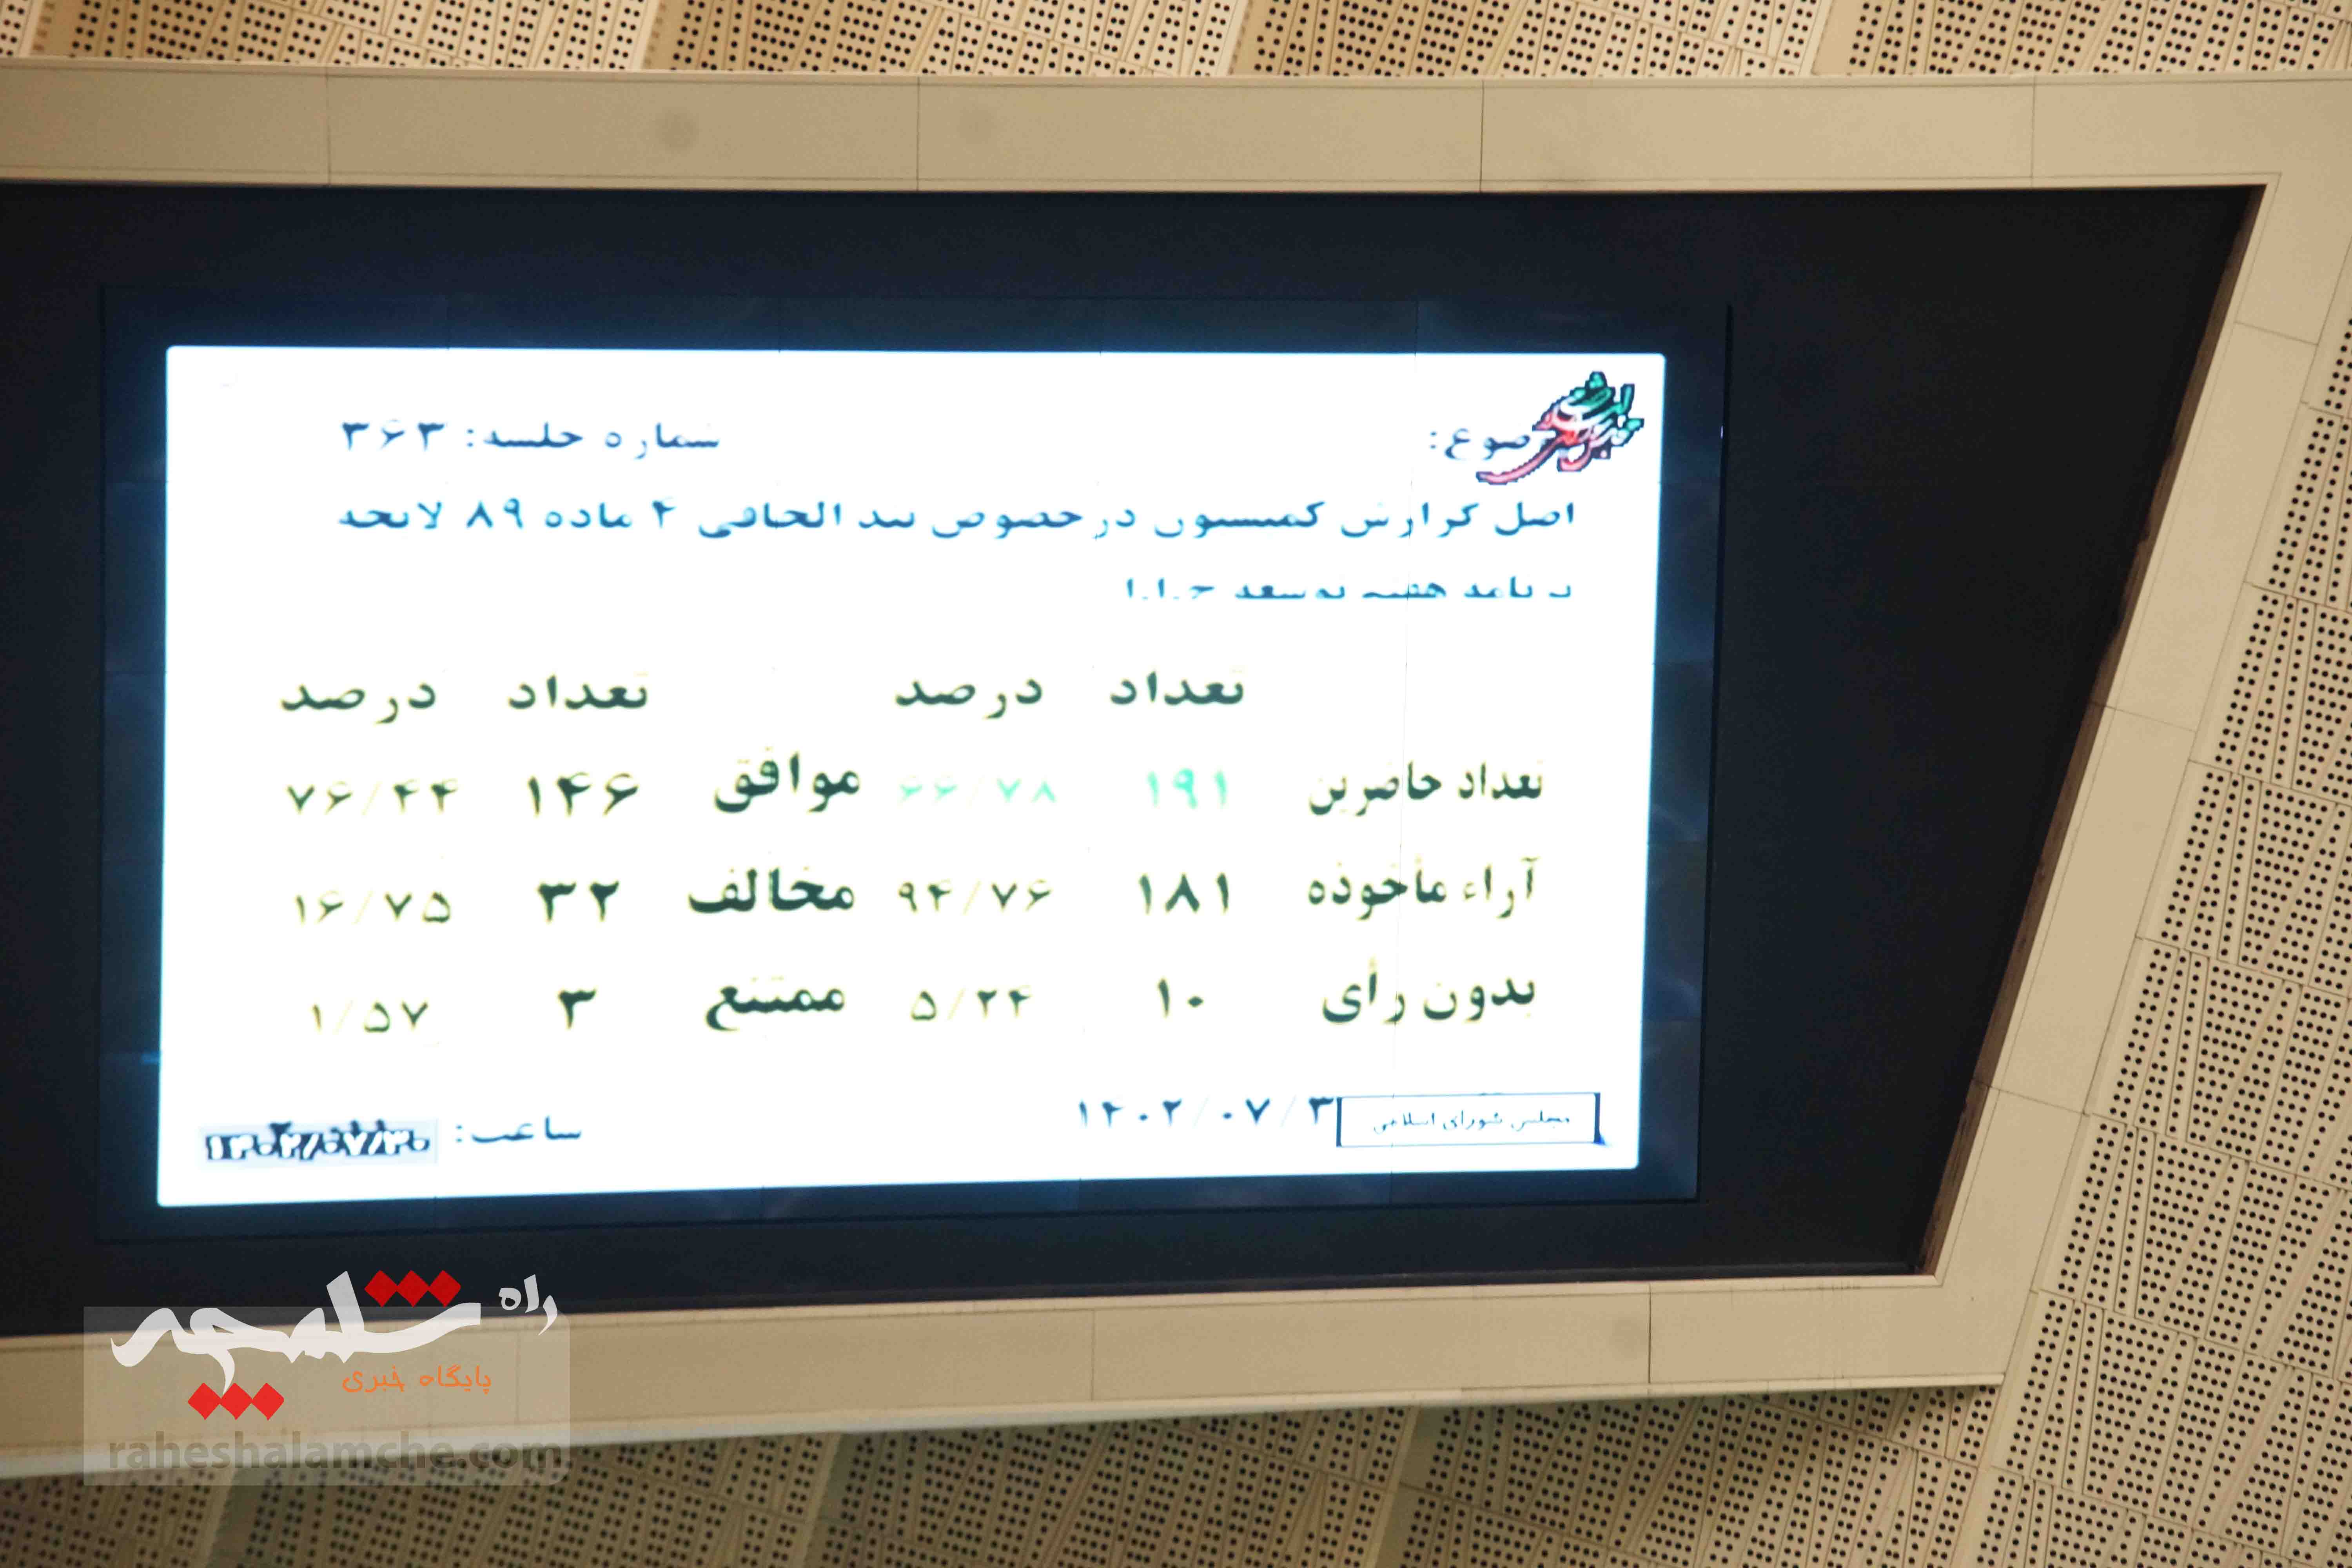 موضوع: شماره جلسه: ۳۶۳
اصل گزارش کمیسیون در خصوص بند الحاقی ۴ ماده ۸۹ لایحه
برنامه هفتم توسعه ج.ا.ا
تعداد درصد تعداد درصد
تعداد حاضرین ۱۹۱ ۶۶/۷۸ موافق ۱۴۶ ۷۶/۴۴
آراء مأخوذه ۱۸۱ ۹۴/۷۶ مخالف ۳۲ ۱۶/۷۵
بدون رأی ۱۰ ۵/۲۴ ممتنع ۳ ۱/۵۷
مجلس شورای اسلامی ۱۴۰۲/۰۷/۳ ساعت:
راه شلمچه
پایگاه خبری
raheshalamche.com